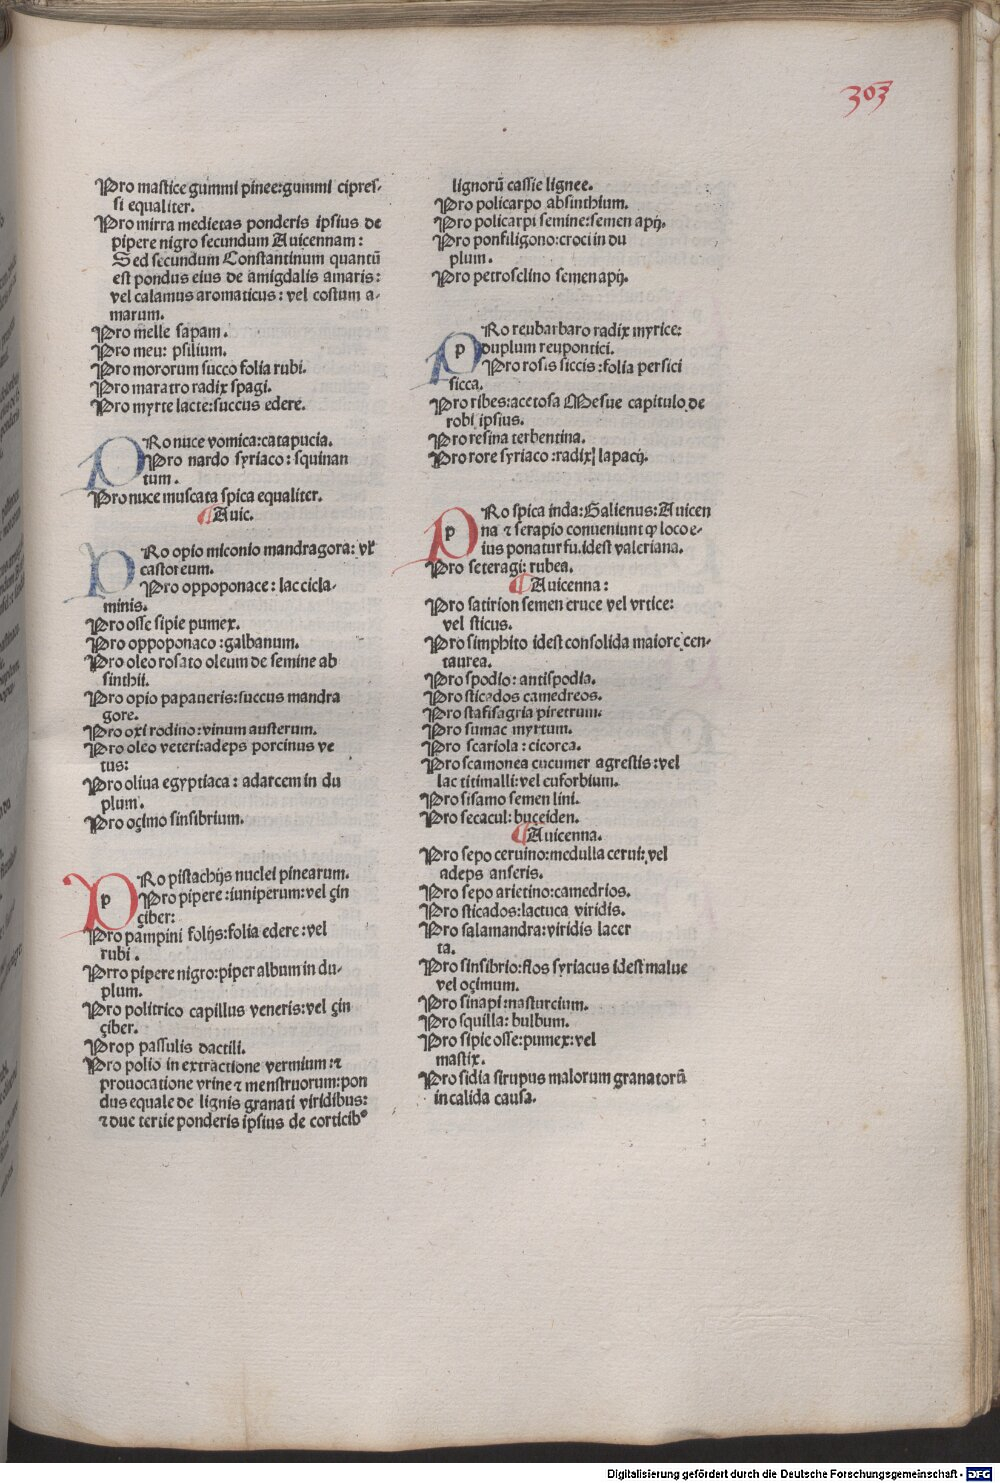 303
Pro mastice gummi pinee:gummi cipres-
si equaliter.
Pro mirra medietas ponderis ipsius de
pipere nigro secundum Auicennam:
Sed secundum Constantinum quantū
est pondus eius de amigdalis amaris:
vel calamus aromaticus: vel costum a-
marum.
Pro melle sapam.
Pro meu: psilium.
Pro mororum succo folia rubi.
Pro maratro radix spagi.
Pro myrte lacte:succus edere.
PRo nuce vomica:catapucia.
Pro nardo syriaco: squinan
tum.
Pro nuce muscata spica equaliter.
¶Auic.
PRo opio miconio mandragora: vł
castoreum.
Pro oppoponace: lac cicla-
minis.
Pro osse sipie pumex.
Pro oppoponaco:galbanum.
Pro oleo rosato oleum de semine ab
sinthii.
Pro opio papaueris:succus mandra
gore.
Pro oxi rodino:vinum austerum.
Pro oleo veteri:adeps porcinus ve
tus:
Pro oliua egyptiaca: adarcem in du
plum.
Pro oçimo sinsibrium.
PRo pistachijs nuclei pinearum.
Pro pipere:iuniperum:vel çin
çiber:
Pro pampini folijs:folia edere:vel
rubi.
Prro pipere nigro:piper album in du-
plum.
Pro politrico capillus veneris:vel çin
çiber.
Prop passulis dactili.
Pro polio in extractione vermium:⁊
prouocatione vrine ⁊ menstruorum:pon
dus equale de lignis granati viridibus:
⁊ due tertie ponderis ipsius de corticibꝰ
lignorū cassie lignee.
Pro policarpo absinthium.
Pro policarpi semine:semen apij.
Pro ponfiligono:croci in du
plum.
Pro petroselino semen apij.
PRo reubarbaro radix myrice:
duplum reupontici.
Pro rosis siccis:folia persici
sicca.
Pro ribes:acetosa Mesue capitulo de
robi ipsius.
Pro resina terbentina.
Pro rore syriaco:radix lapacij.
PRo spica inda:Galienus:Auicen
na ⁊ serapio conueniunt ꝙ loco e-
ius ponatur fu.idest valeriana.
Pro seteragi: rubea.
¶Auicenna:
Pro satirion semen eruce vel vrtice:
vel sticus.
Pro simphito idest consolida maiore cen-
taurea.
Pro spodio: antispodia.
Pro sticados camedreos.
Pro stafisagria piretrum.
Pro sumac myrtum.
Pro scariola: cicorea.
Pro scamonea cucumer agrestis:vel
lac titimalli:vel euforbium.
Pro sisamo semen lini.
Pro secacul: buceiden.
¶Auicenna.
Pro sepo ceruino:medulla cerui:vel
adeps anseris.
Pro sepo arietino:camedrios.
Pro sticados:lactuca viridis.
Pro salamandra:viridis lacer
ta.
Pro sinsibrio:flos syriacus idest malue
vel oçimum.
Pro sinapi:nasturcium.
Pro squilla: bulbum.
Pro sipie osse:pumex:vel
mastix.
Pro sidia sirupus malorum granatorū
in calida causa.
Digitalisierung gefördert durch die Deutsche Forschungsgemeinschaft - DFG